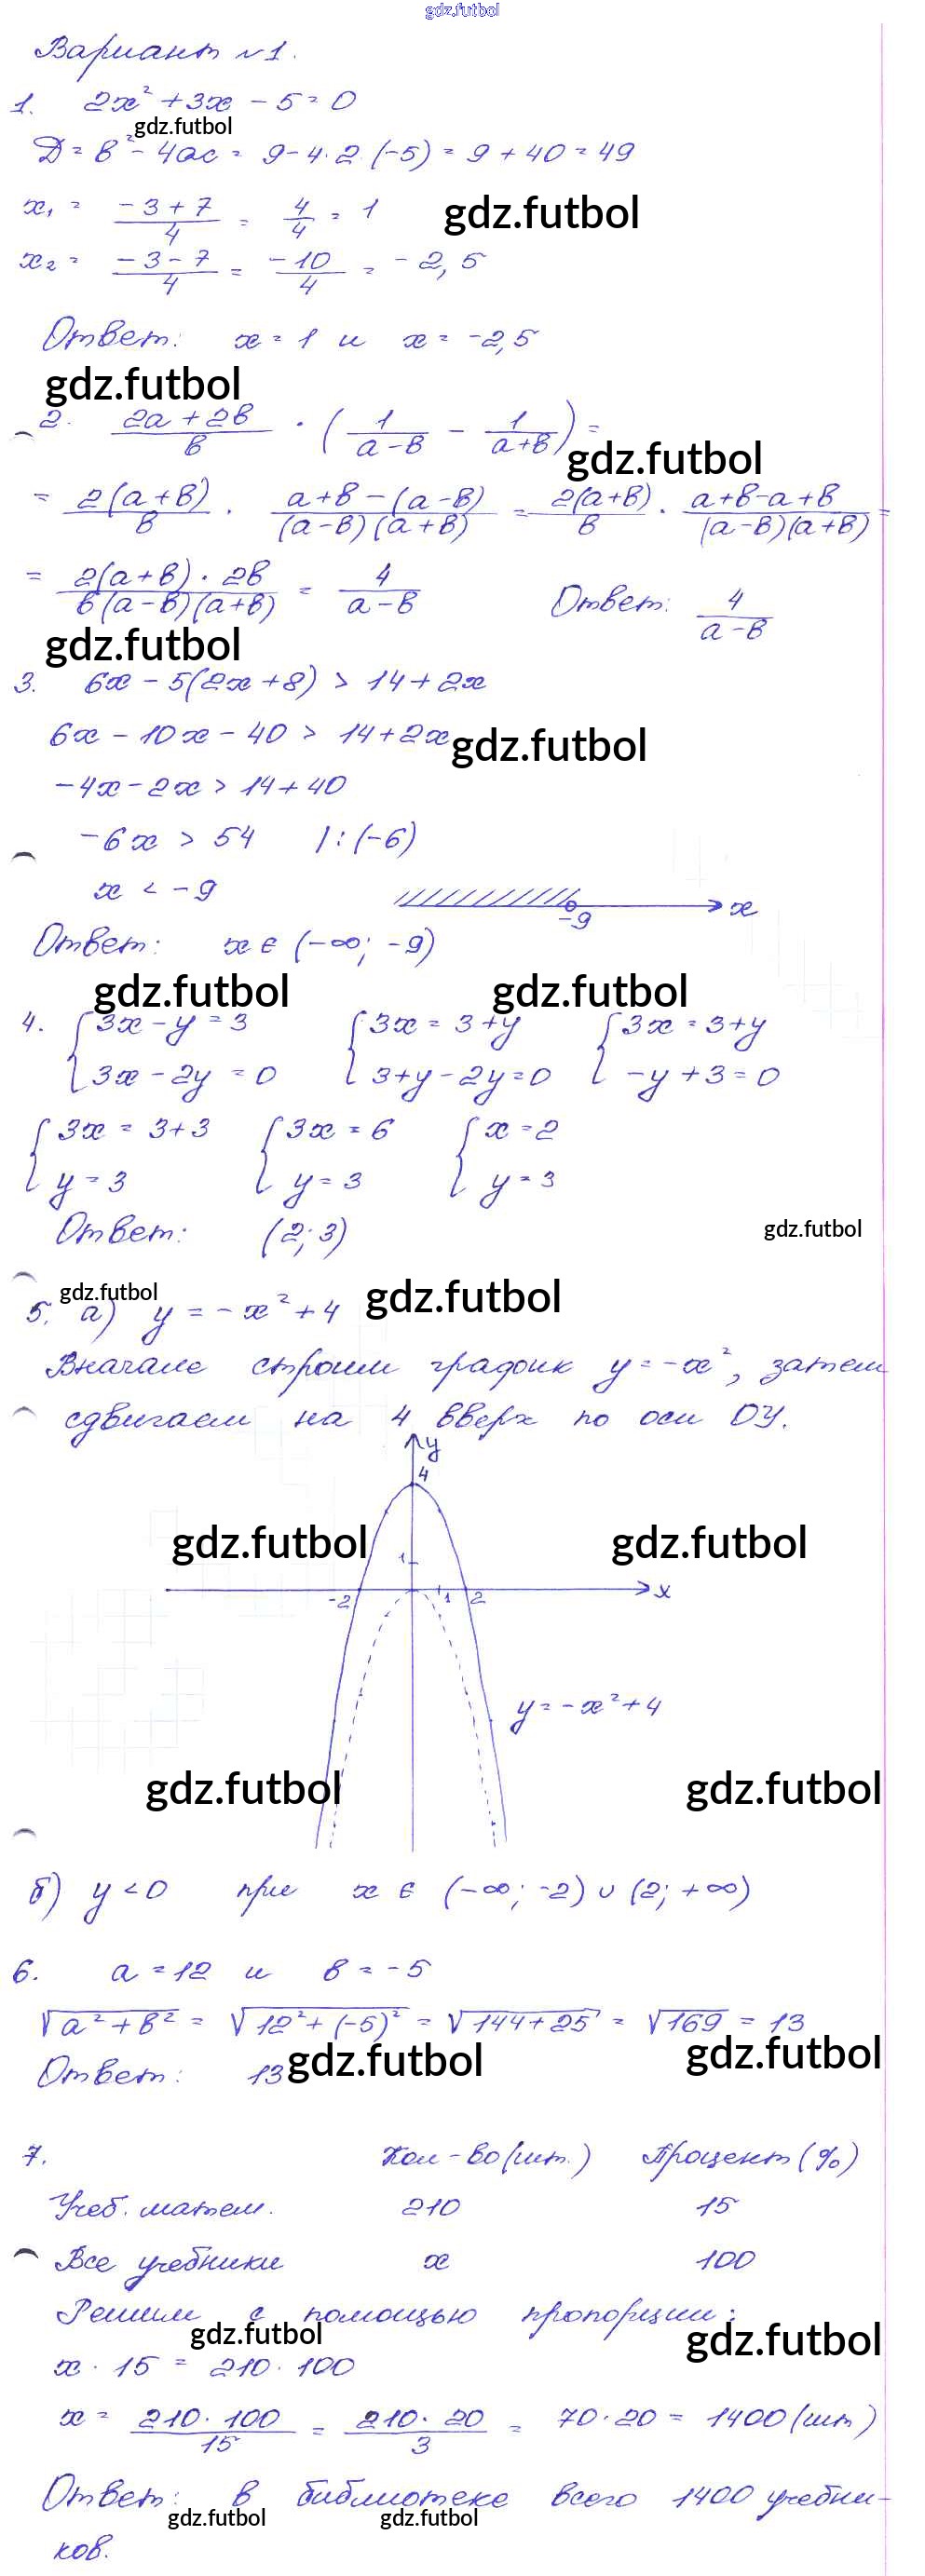 gdz.futbol
Вариант №1.
1. 2x² + 3x - 5 = 0
gdz.futbol
Д = в² - 4ac = 9 - 4·2·(-5) = 9 + 40 = 49
x₁ = (-3 + 7)/4 = 4/4 = 1
gdz.futbol
x₂ = (-3 - 7)/4 = -10/4 = -2,5
Ответ: x = 1 и x = -2,5
gdz.futbol
2. (2a + 2в)/в · (1/(a-в) - 1/(a+в)) =
gdz.futbol
= 2(a+в)/в · (a+в-(a-в))/((a-в)(a+в)) = 2(a+в)/в · (a+в-a+в)/((a-в)(a+в)) =
= (2(a+в)·2в)/(в(a-в)(a+в)) = 4/(a-в) Ответ: 4/(a-в)
gdz.futbol
3. 6x - 5(2x+8) > 14 + 2x
6x - 10x - 40 > 14 + 2x
gdz.futbol
-4x - 2x > 14 + 40
-6x > 54 |:(-6)
x < -9
-9 x
Ответ: x ∈ (-∞; -9)
gdz.futbol gdz.futbol
4. { 3x - y = 3 { 3x = 3 + y { 3x = 3 + y
3x - 2y = 0 3 + y - 2y = 0 -y + 3 = 0
{ 3x = 3 + 3 { 3x = 6 { x = 2
y = 3 y = 3 y = 3
Ответ: (2; 3)
gdz.futbol
gdz.futbol gdz.futbol
5. а) y = -x² + 4
Вначале строим график y = -x², затем
сдвигаем на 4 вверх по оси OY.
y
4
gdz.futbol gdz.futbol
1
-2 1 2 x
y = -x² + 4
gdz.futbol gdz.futbol
б) y < 0 при x ∈ (-∞; -2) ∪ (2; +∞)
6. a = 12 и в = -5
√(a² + в²) = √(12² + (-5)²) = √(144 + 25) = √169 = 13
gdz.futbol gdz.futbol
Ответ: 13
7. Кол-во (шт.) Процент (%)
Учеб. матем. 210 15
Все учебники x 100
Решим с помощью пропорции:
gdz.futbol gdz.futbol
x · 15 = 210 · 100
x = (210 · 100)/15 = (210 · 20)/3 = 70 · 20 = 1400 (шт)
Ответ: в библиотеке всего 1400 учебни-
gdz.futbol gdz.futbol
ков.